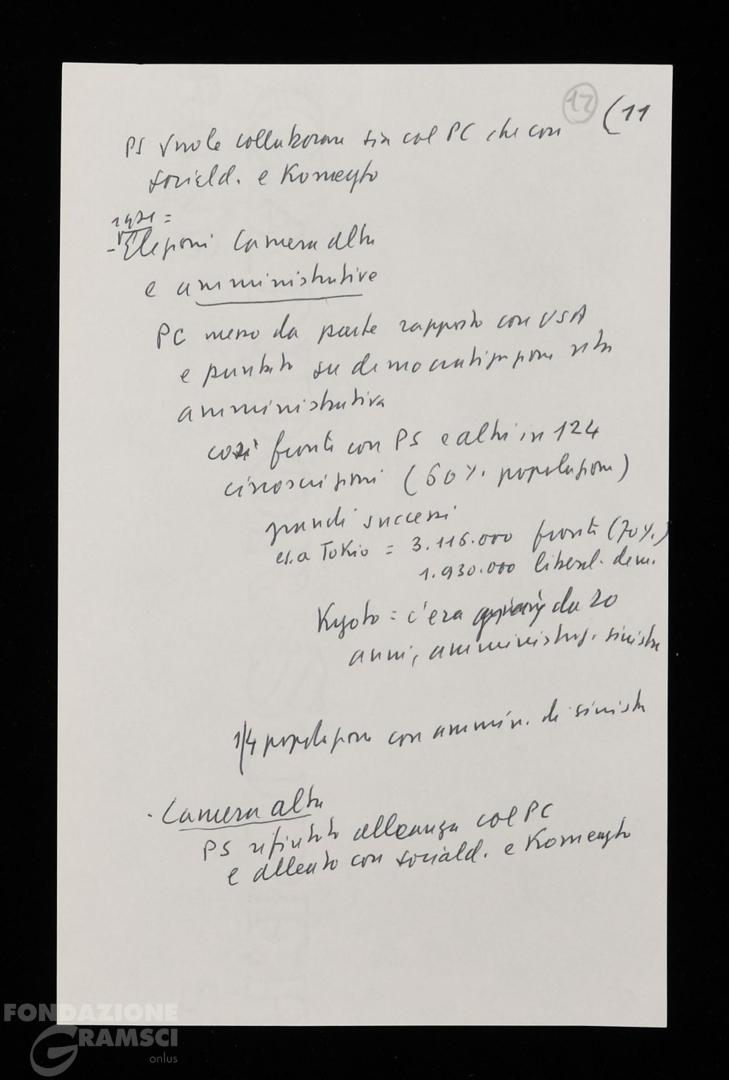 12 (11
PS vuole collaborare sia col PC che con
sociald. e Komeyto
1971 =
- Elezioni Camera alta
e amministrative
PC messo da parte rapporto con USA
e puntato su democratizzazione vita
amministrativa
così fronti con PS e altri in 124
circoscrizioni (60% popolazione)
grandi successi
es. a Tokio = 3.116.000 fronte (70%)
1.930.000 liberal. dem.
Kyoto = c'era già da 20
anni, amministraz. sinistra
1/4 popolazione con ammin. di sinistra
- Camera alta
PS rifiutato alleanza col PC
e alleato con sociald. e Komeyto
FONDAZIONE
GRAMSCI
onlus